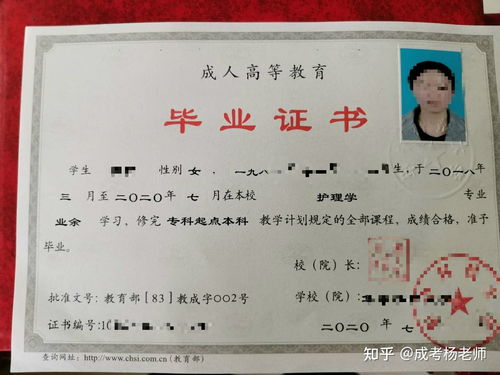 成人高等教育
毕业证书
学生 性别 女， 一九八 生，于二〇一八年
三 月至 二〇二〇年 七 月在本校 护理学 专业
业余 学习，修完 专科起点本科 教学计划规定的全部课程，成绩合格，准予
毕业。
校（院）长：
批准文号：教育部［83］教成字002号 学校（院）：
证书编号：10 二〇二〇年 七
查询网址：http://www.chsi.com.cn（教育部）
知乎 @成考杨老师